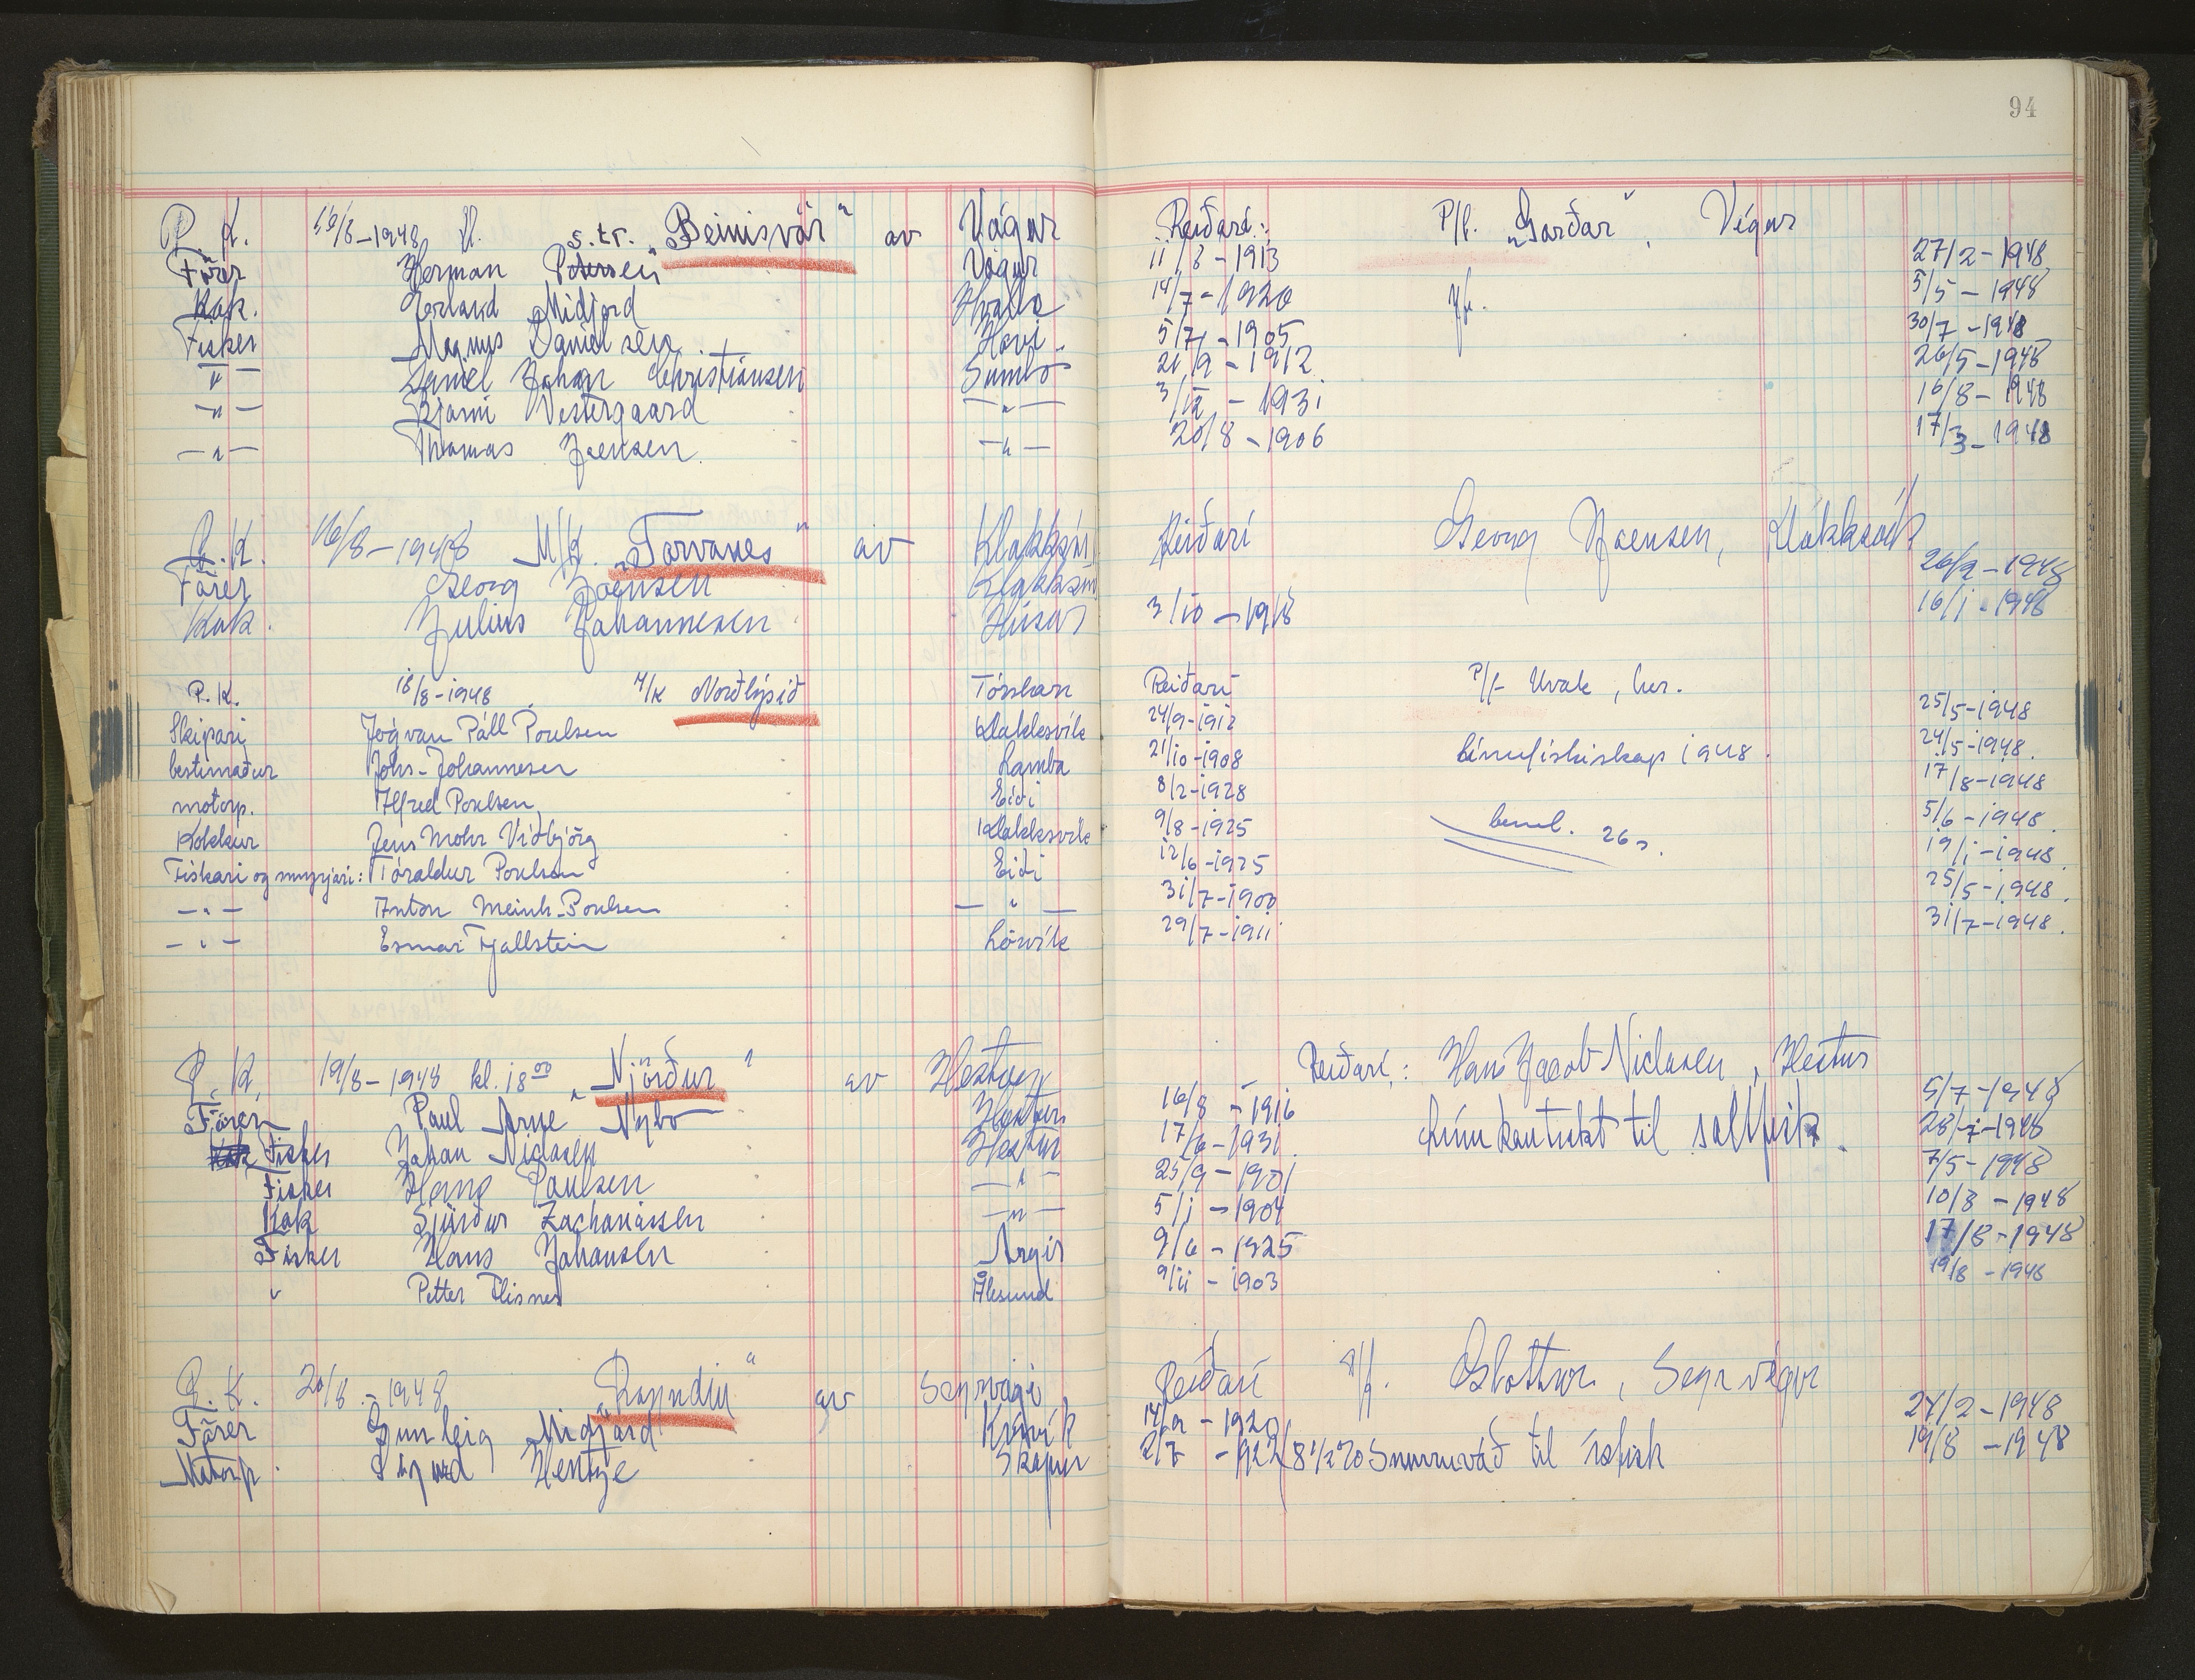 94
P. K. 16/8-1948 kl. s.tr. „Beinisvør“ av Vágur Reiðarí: P/f. „Garðar“, Vágur
Förer Herman Petersen Vágur 11/8-1913 27/2-1948
Kok. Erland Midjord Hvalba 14/7-1920 5/5-1948
Fisker Magnus Danielsen Hovi. 5/7-1905 30/7-1948
-"- Daniel Johan Christiansen Sumbö 21/9-1912 26/5-1948
-"- Bjarni Vestergaard -"- 3/12-1931 16/8-1948
-"- Thomas Joensen. -"- 20/8-1906 17/3-1948
P. K. 16/8-1948 M/k. „Tarvanes“ av Klakksvík Reiðarí Georg Joensen, Klakksvík
Förer Georg Joensen Klakksvík 26/2-1948
Kok. Julius Johannesen Húsar 3/10-1918 16/1-1948
P. K. 18/8-1948 M/K Norðlýsið Tórshavn Reiðarí P/f Uvak, her.
Skipari Jógvan Páll Poulsen Klakksvík 24/9-1912 25/5-1948
bestimaður Johs. Johannesen Lamba 21/10-1908 línufiskiskap 1948. 24/5-1948.
motorp. Alfred Poulsen Eiði 8/2-1928 17/8-1948
Kokkur Jens Mohr Viðbjörg Klakksvík 9/8-1925 5/6-1948.
Fiskari og : Tóraldur Poulsen Eiði 12/6-1925 19/1-1948
-"- Anton Meinh. Poulsen -"- 31/7-1900 25/5-1948.
-"- Esmar Fjallstein Lorvík 29/7-1911 31/7-1948.
P. K. 19/8-1948 kl. 18⁰⁰ „Njörður“ av Hestur Reiðarí: Hans Jacob Niclasen, Hestur
Förer Paul Arne Nybo Hestur 16/8-1916 5/7-1948
Fisker Johan Niclasen Hestur 17/6-1931. Línukontrakt til saltfisk. 28/7-1948
Fisker Hans Poulsen -"- 25/9-1901 7/5-1948
Kok Sjúrður Zachariassen -"- 5/1-1904 10/8-1948
Fisker Hans Johansen Argir 9/6-1925 17/8-1948
" Petter Flisnes Ålesund 9/11-1903 19/8-1948
P. K. 20/8-1948 „Rayndin“ av Sørvági Reiðarí P/f. , Sørvágur
Förer Gunleig Midjord Kvívík 14/9-1920 24/2-1948
Motorp. Sigurd Hentze Skopun 2/7-1922 (8 1/2 % Snurruváð til ísfisk 19/8-1948